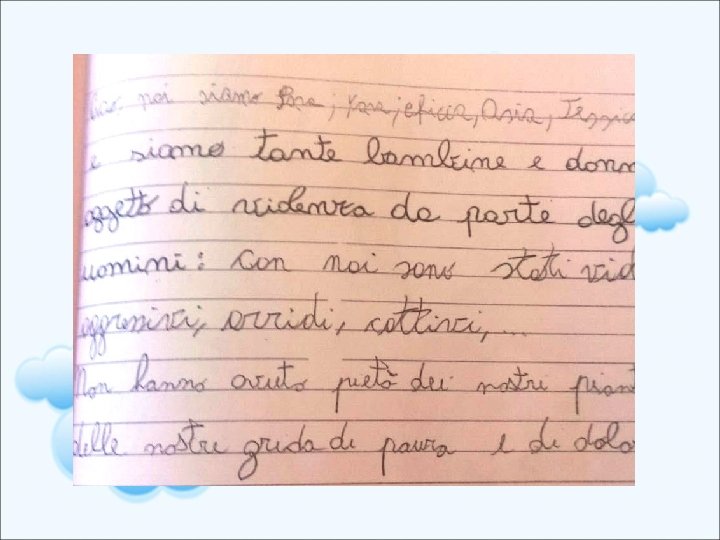 noi siamo Sara; Yara; Asia,
e siamo tante bambine e donn
oggetto di violenza da parte degl
uomini: con noi sono stati viol
aggressivi, orridi, cattivi,...
Non hanno avuto pietà dei nostri piant
delle nostre grida di paura e di dolo